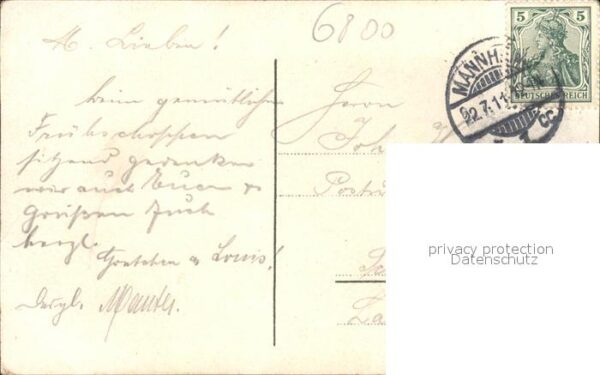 M. Lieben!
6800
beim gemütlichen
Frühschoppen
sitzend gedenken
wir auch Euer &
Grüßen Euch
herzl.
Gretchen & Louis!
Desgl.
Herrn
Joh
5 5
DEUTSCHES REICH
MANNH
22.7.11
CC
privacy protection
Datenschutz